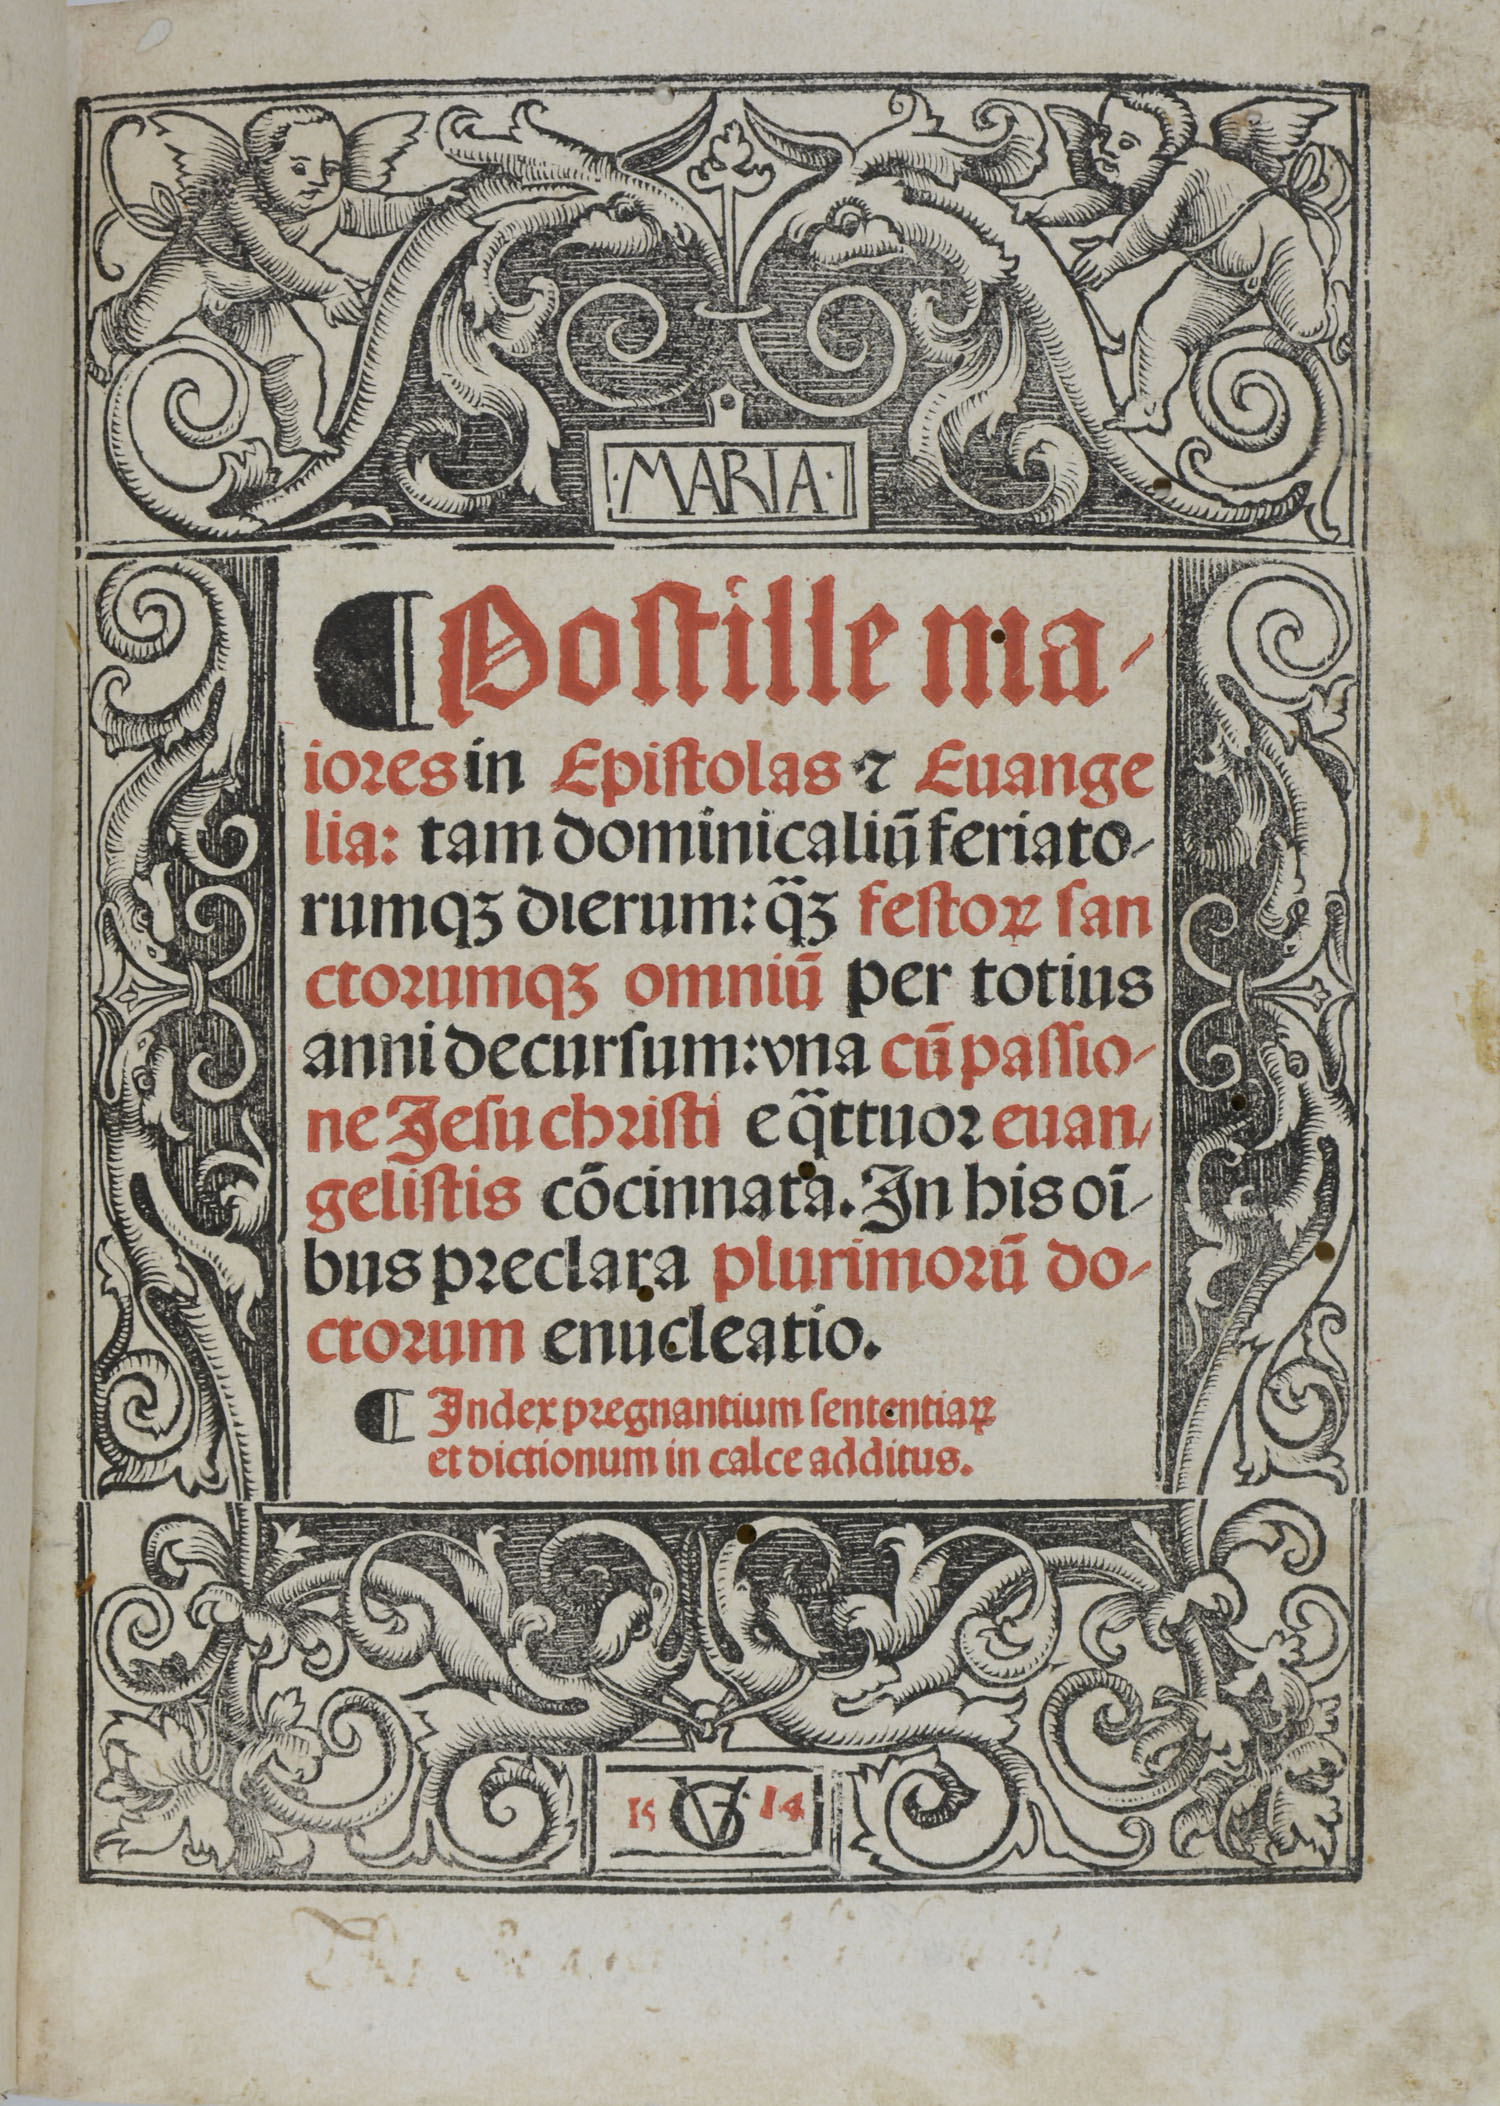 ·MARIA·
¶ Postille ma-
iores in Epistolas ⁊ Euange
lia: tam dominicaliū feriato-
rumqꝫ dierum: q̈ꝫ festoꝝ san
ctorumqꝫ omniū per totius
anni decursum: vna cū passio-
ne Jesu christi e q̈ttuor euan-
gelistis cōcinnata. In his oī-
bus preclara plurimorū do-
ctorum enucleatio.
¶ Index pregnantium sententiaꝝ
et dictionum in calce additus.
15 VG 14